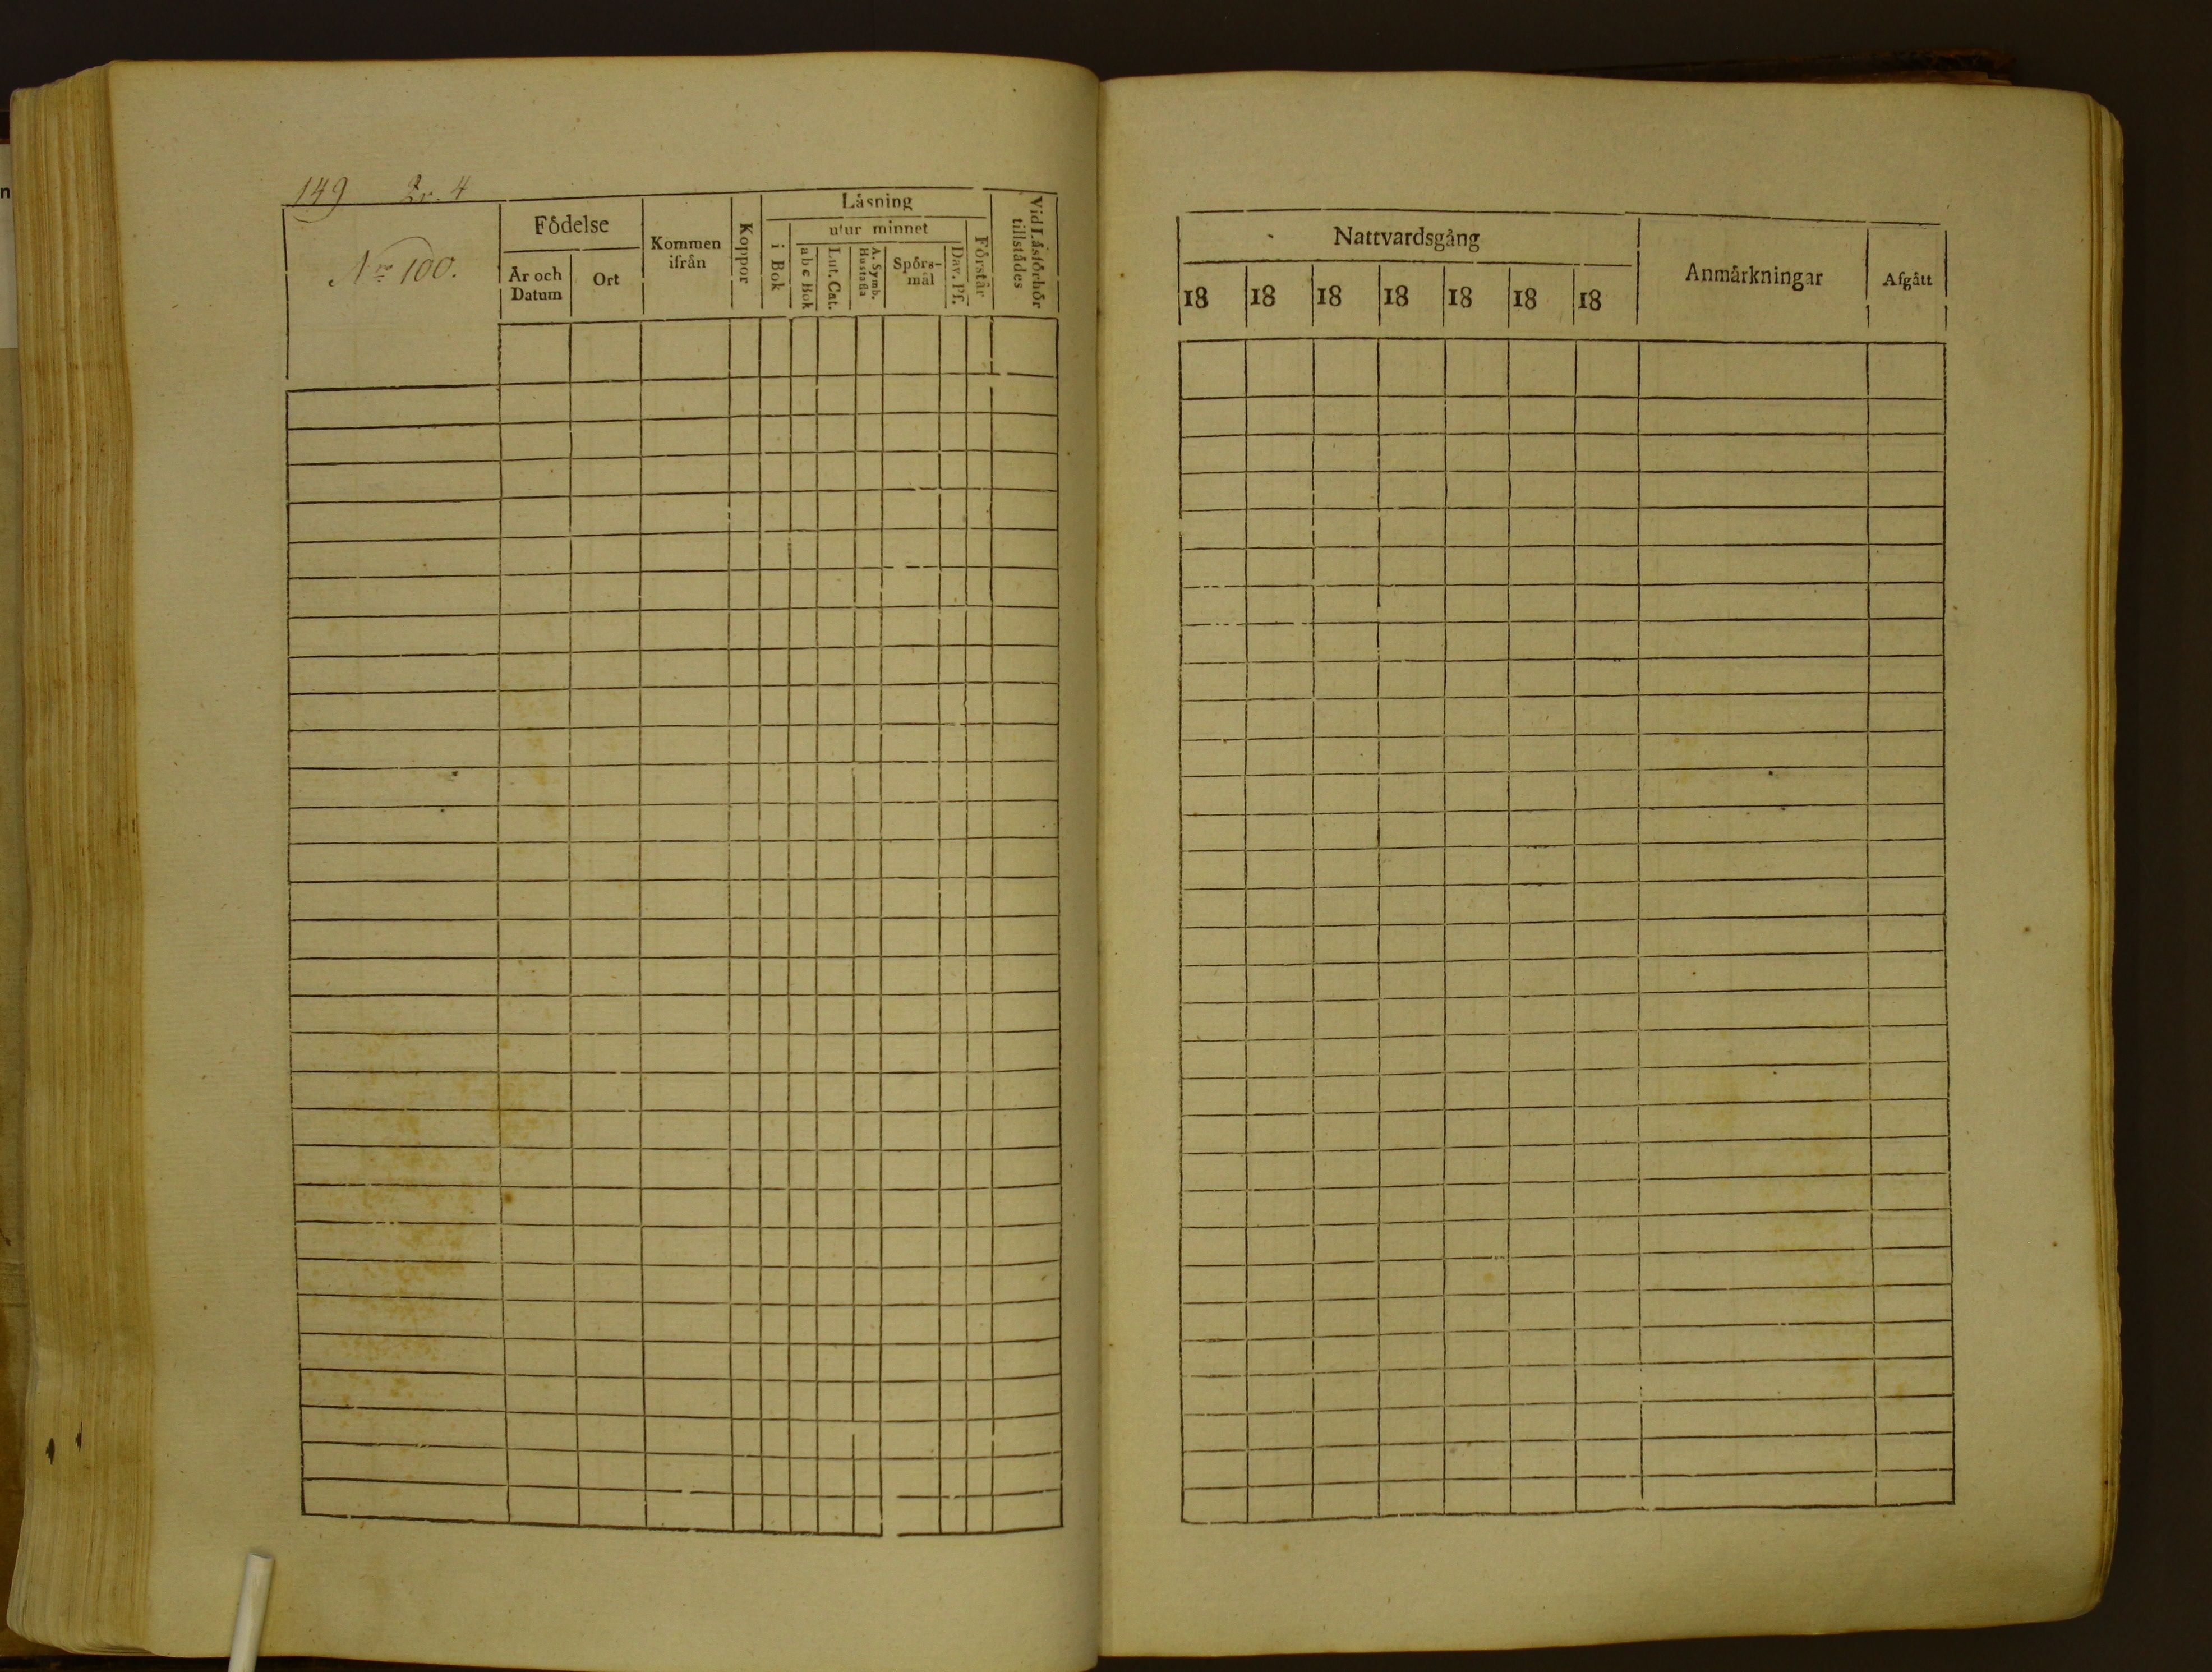 149 Qv. 4
No 100.
Födelse
År och Datum
Ort
Kommen ifrån
Koppor
Läsning
i Bok
utur minnet
abc Bok
Lut. Cat.
A. Symb. Hustafla
Spörs-
mål
Dav. Ps.
Förstår
Vid Läsförhör tillstådes
Nattvardsgång
18 18 18 18 18 18 18
Anmärkningar
Afgått
n